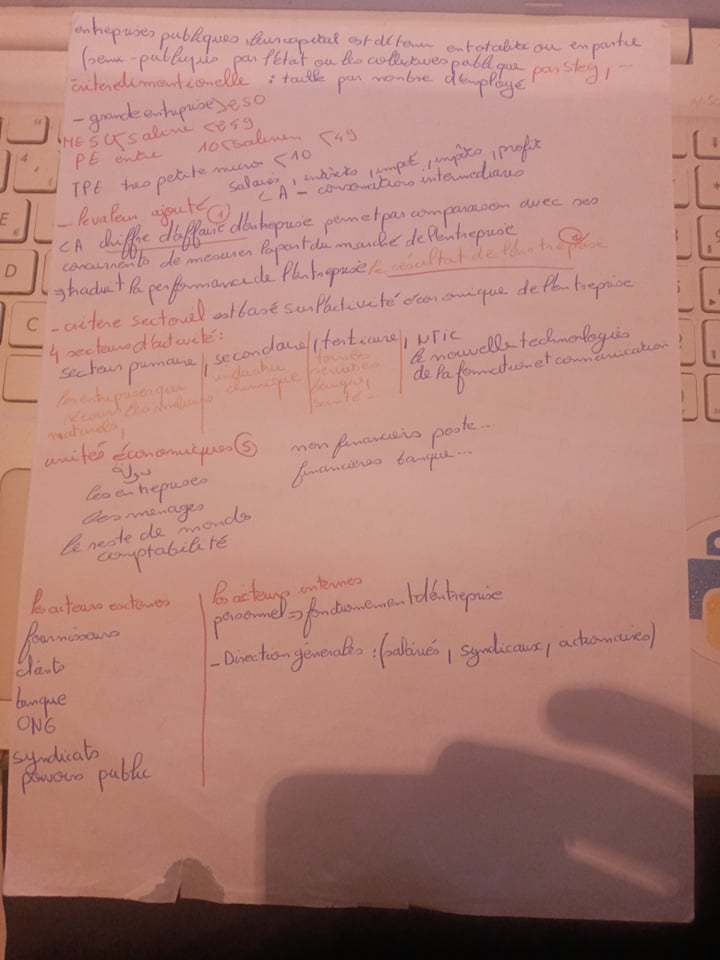 entreprises publiques : leur capital est détenu en totalité ou en partie
(semi-publiques par l'état ou les collectives publique par steg, ...
critere dimentionelle : taille par nombre d'employé
- grande entreprise > 250
PE entre 10 < salariés < 49
TPE tres petite micro < 10
salaires, interets, impôts, profit
CA - consomations intermediares
- la valeur ajouté ①
CA chiffre d'affaire d'entreprise permet par comparaison avec ses
concurrents de mesurer la part du marché de l'entreprise
⇒ traduit la performance de l'entreprise le résultat de l'entreprise
- critère sectoriel est basé sur l'activité économique de l'entreprise
4 secteurs d'activité :
secteur primaire, secondaire, tertiaire, NTIC
le nouvelle technologies
de la formation et communication
les entreprises que
naturels,
industrie
chimique
banque,
santé...
unités économiques ⑤
les entreprises
les menages
le reste de monde
comptabilité
non financiers poste...
financières banque...
les acteurs externes
fournisseurs
clients
banque
ONG
syndicats
pouvoirs public
les acteurs internes
personnel ⇒ fonctionnement d'entreprise
- Direction générales : (salariés, syndicaux, actionnaires)